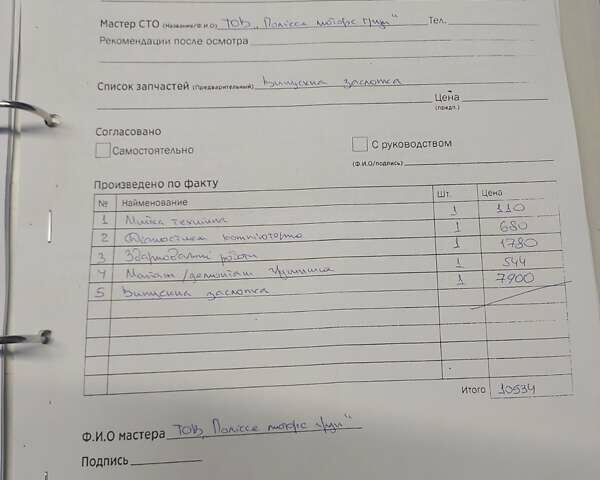 Мастер СТО (Название/Ф.И.О) ТОВ „Полісся моторс груп“ Тел.
Рекомендации после осмотра
Список запчастей (Предварительный) Випускна заслонка
Цена
(предв.)
Согласовано
Самостоятельно С руководством
(Ф.И.О/подпись)
Произведено по факту
№ Наименование Шт. Цена
1 Мийка технічна 1 110
2 Діагностика комп'ютерна 1 680
3 Зварювальні роботи 1 1780
4 Монтаж/демонтаж глушника 1 544
5 Випускна заслонка 1 7900
Итого 10534
Ф.И.О мастера ТОВ „Полісся моторс груп“
Подпись